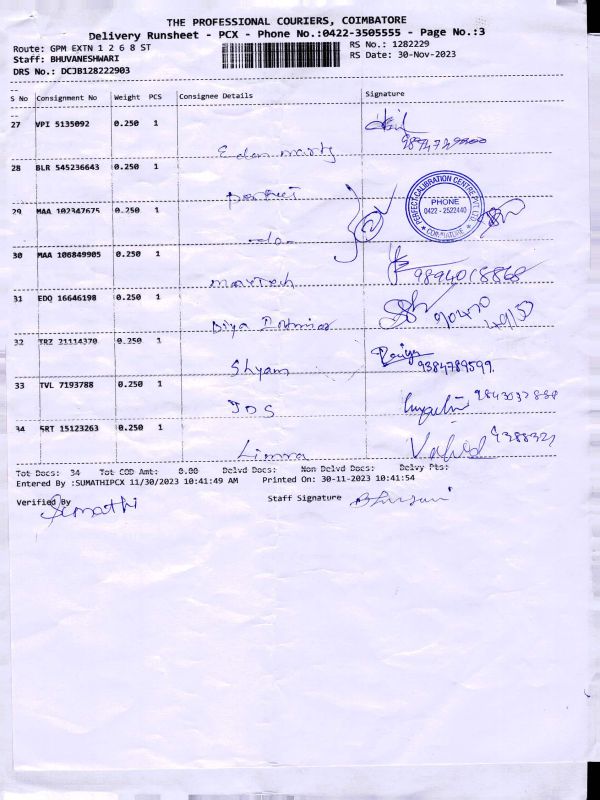 THE PROFESSIONAL COURIERS, COIMBATORE
Delivery Runsheet - PCX - Phone No.:0422-3505555 - Page No.:3
Route: GPM EXTN 1 2 6 8 ST
RS No.: 1282229
Staff: BHUVANESHWARI
RS Date: 30-Nov-2023
DRS No.: DCJB128222903
S No Consignment No Weight PCS Consignee Details Signature
27 VPI 5135092 0.250 1
28 BLR 545236643 0.250 1
Perfect
PERFECT CALIBRATION CENTRE PVT LTD
PHONE
0422 - 2522440
COIMBATORE
29 MAA 102347675 0.250 1
-do-
30 MAA 106849905 0.250 1
9894018868
31 EDQ 16646198 0.250 1
Diya
32 TRZ 21114370 0.250 1
Shyam 9384789599
33 TVL 7193788 0.250 1
JDS
34 SRT 15123263 0.250 1
Limra
Tot Docs: 34 Tot COD Amt: 0.00 Delvd Docs: Non Delvd Docs: Delvy Pts:
Entered By :SUMATHIPCX 11/30/2023 10:41:49 AM Printed On: 30-11-2023 10:41:54
Verified By Staff Signature
Sumathi